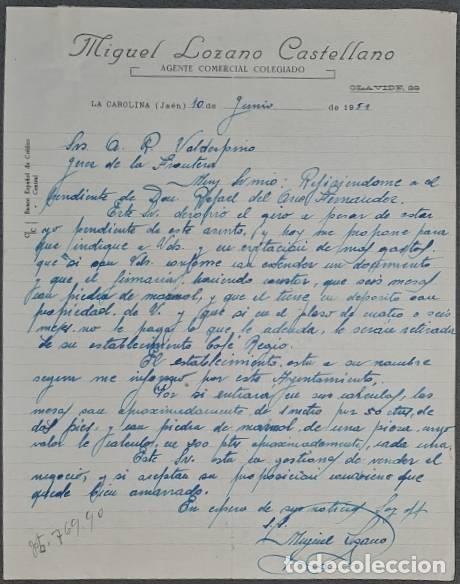 Miguel Lozano Castellano
AGENTE COMERCIAL COLEGIADO
OLAVIDE, 29
LA CAROLINA (Jaén) 10 de Junio de 1951
Srs A. R. Valdespino
Jerez de la Frontera
Muy Sr mio: Refiriendome a el
pendiente de Don Rafael del Fernandez.
Este Sr. el giro a pesar de estar
yo pendiente de este asunto, y hoy me propone para
que indique a Vds. y en evitación de mas gastos,
que si son Vds. conforme con extender un documento
y que el firmaria, haciendo constar, que seis mesas
con piedra de marmol, y que el tiene en deposito son
propiedad de V. y que si en el plazo de cuatro o seis
meses no le paga lo que le adeuda, le seran retiradas
de su establecimiento Café Regio.
El establecimiento esta a su nombre
segun me informo por este Ayuntamiento,
Por si entrara en sus calculos, las
mesas son aproximadamente de 1 metro por 50 ctms, de
dos pies y con piedra de marmol, de una pieza, cuyo
valor le calculo, en 500 pts aproximadamente, cada una.
Este Sr. esta en gestiones de vender el
negocio, y si aceptan su proposicion conviene que
quede bien amarrado.
En espera de sus noticias soy aff
s.s.
Miguel Lozano
Banco Español de Crédito
Central
Pts. 769,90
todocoleccion